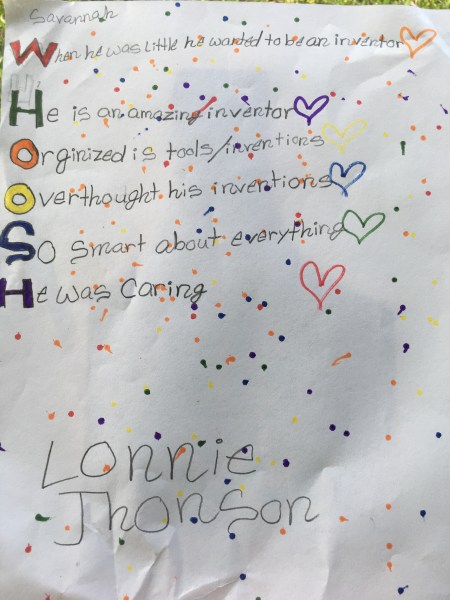 Savannah
When he was little he wanted to be an inventor
He is an amazing inventor
Orginized is tools/inventions
Overthought his inventions
So smart about everything
He was Caring
Lonnie
Jhonson